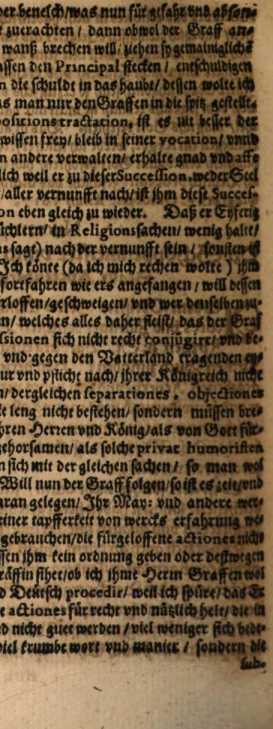 ber beneſch/was nun für gefahr vnd abſon-
zuerachten / dann obwol der Graff an-
wanß brechen will / ziehen ſy gemainiglich
aſſen den Principal ſtecken / entſchuldigen
n die ſchulde in das haubt / deſſen wolte ich
as man nur den Graffen in die ſpitz geſtellt
poſitions tractation, iſt es vil beſſer der
wiſſen frey / bleib in ſeiner vocation / vnnd
n andere verwalten / erhalte gnad vnd affe
lich weil er zu dieſer Succeſſion, weder Seel
/ aller vernunfft nach / iſt ihm dieſe Succeſ-
on eben gleich zu wieder. Daß er Eyferig
üchlern / in Religions ſachen / wenig halte /
ns ſage) nach der vernunfft ſein / ſonſten iſt
Ich könte (da ich mich rechen wolte) ihm
fortfahren wie ers angefangen / will deſſen
erloffen / geſchweigen / vnd wer denſelben zu-
en / welches alles daher fleiſt / das der Graf
ſsionen ſich nicht recht conjúgirt / vnd be-
vnd gegen den Vatterland tragenden ey-
ur vnd pflicht nach / ihrer Königreich nicht
n / dergleichen ſeparationes, objectiones
le leng nicht beſtehen / ſondern müſſen bre-
hren Herren vnd König / als von Gott für-
gehorſamen / als ſolche privat humoriſten
n ſich mit der gleichen ſachen / ſo man wol
Will nun der Graff folgen / ſo iſt es zeit / vnd
aran gelegen / Ihr May: vnd andere wer-
einer tapfferkeit von wercks erfahrung we-
gebrauchen / die fürgeloffene actiones nicht
ſſen ihm kein ordnung geben oder deſtwegen
räffin ſihet / ob ich ihme Herrn Graffen wol
d Deutſch procedir / weil ich ſpüre / das Er
e actiones für recht vnd nützlich helt / die in
d nicht guet werden / viel weniger ſich bede-
viel krumbe wort vnd manier / ſondern die